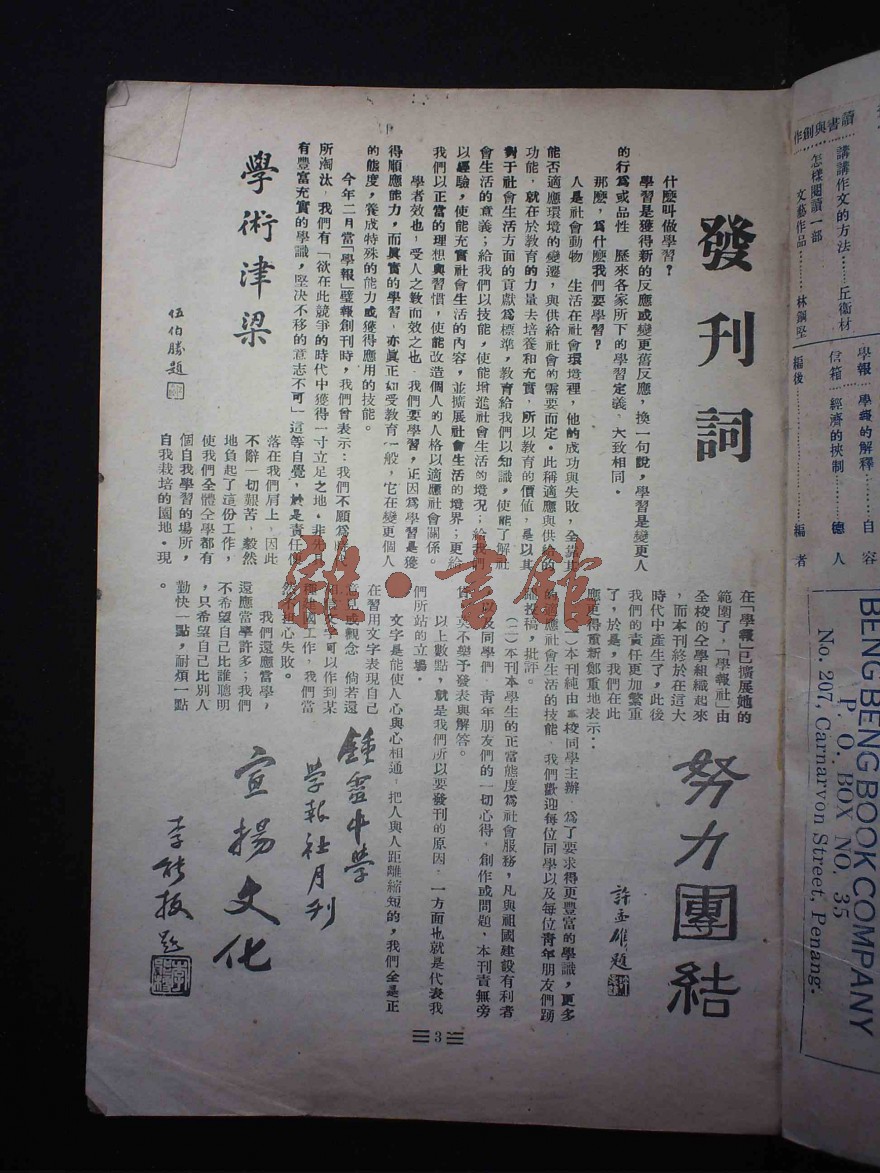 發刊詞
什麼叫做學習？
學習是獲得新的反應或變更舊反應，換一句說，學習是變更人
的行爲或品性　歷來各家所下的學習定義，大致相同。
那麼，爲什麼我們要學習？
人是社會動物　生活在社會環境裡，他的成功與失敗，全靠其
能否適應環境的變遷，與供給社會的需要而定。此種適應與供給的
功能，就在於教育的力量去培養和充實，所以教育的價値，是以其
對于社會生活方面的貢獻爲標準，教育給我們以知識，使能了解社
會生活的意義；給我們以技能，使能增進社會生活的境況；給我們
以經驗，使能充實社會生活的內容，並擴展社會生活的境界；更給
我們以正當的理想與習慣，使能改造個人的人格以適應社會關係。
學者效也，受人之教而效之也　我們要學習，正因爲學習是獲
得順應能力，而眞實的學習　亦眞正如受教育一般，它在變更個人
的態度，養成特殊的能力或獲得應用的技能。
今年二月當「學報」壁報創刊時，我們曾表示：我們不願爲時代
所淘汰，我們有「欲在此競爭的時代中獲得一寸立足之地，非先具
有豐富充實的學識，堅決不移的意志不可」這等自覺，於是責任便
落在我們肩上，因此
不辭一切艱苦，毅然
地負起了這份工作，
使我們全體仝學都有
個自我學習的場所，
自我栽培的園地。現
學術津梁
伍伯勝題
在「學報」已擴展她的
範圍了，「學報社」由
全校的仝學組織起來
，而本刊終於在這大
時代中產生了，此後
我們的責任更加繁重
了，於是，我們在此
應更得重新鄭重地表示：
(一)本刊純由本校同學主辦　爲了要求得更豐富的學識，更多
的適應社會生活的技能　我們歡迎每位同學以及每位靑年朋友們踴
躍投稿，批評。
(二)本刊本學生的正當態度爲社會服務，凡與祖國建設有利者
以及同學們　靑年朋友們的一切心得，創作或問題，本刊責無旁
莫不樂予發表與解答。
以上數點，就是我們所以要發刊的原因，一方面也就是代表我
們所站的立場。
文字是能使人心與心相通，把人與人距離縮短的，我們全是正
在習用文字表現自己
或觀念　倘若還
可以作到某
工作，我們當
然不担心失敗。
我們還應當學，
還應當學許多；我們
不希望自己比誰聰明
，只希望自己比別人
勤快一點，耐煩一點
。
努力團結
許孟雄題
鍾靈中學
學報社月刊
宣揚文化
李能拔題
3
雜·書館
讀書與創作
講講作文的方法……丘衛材
怎樣閱讀一部
文藝作品………林鋼堅
學報…學報的解釋……自容
信箱…經濟的挾制……德人
編後…………………編者
BENG BENG BOOK COMPANY
P. O. BOX NO. 35
No. 207, Carnarvon Street, Penang.